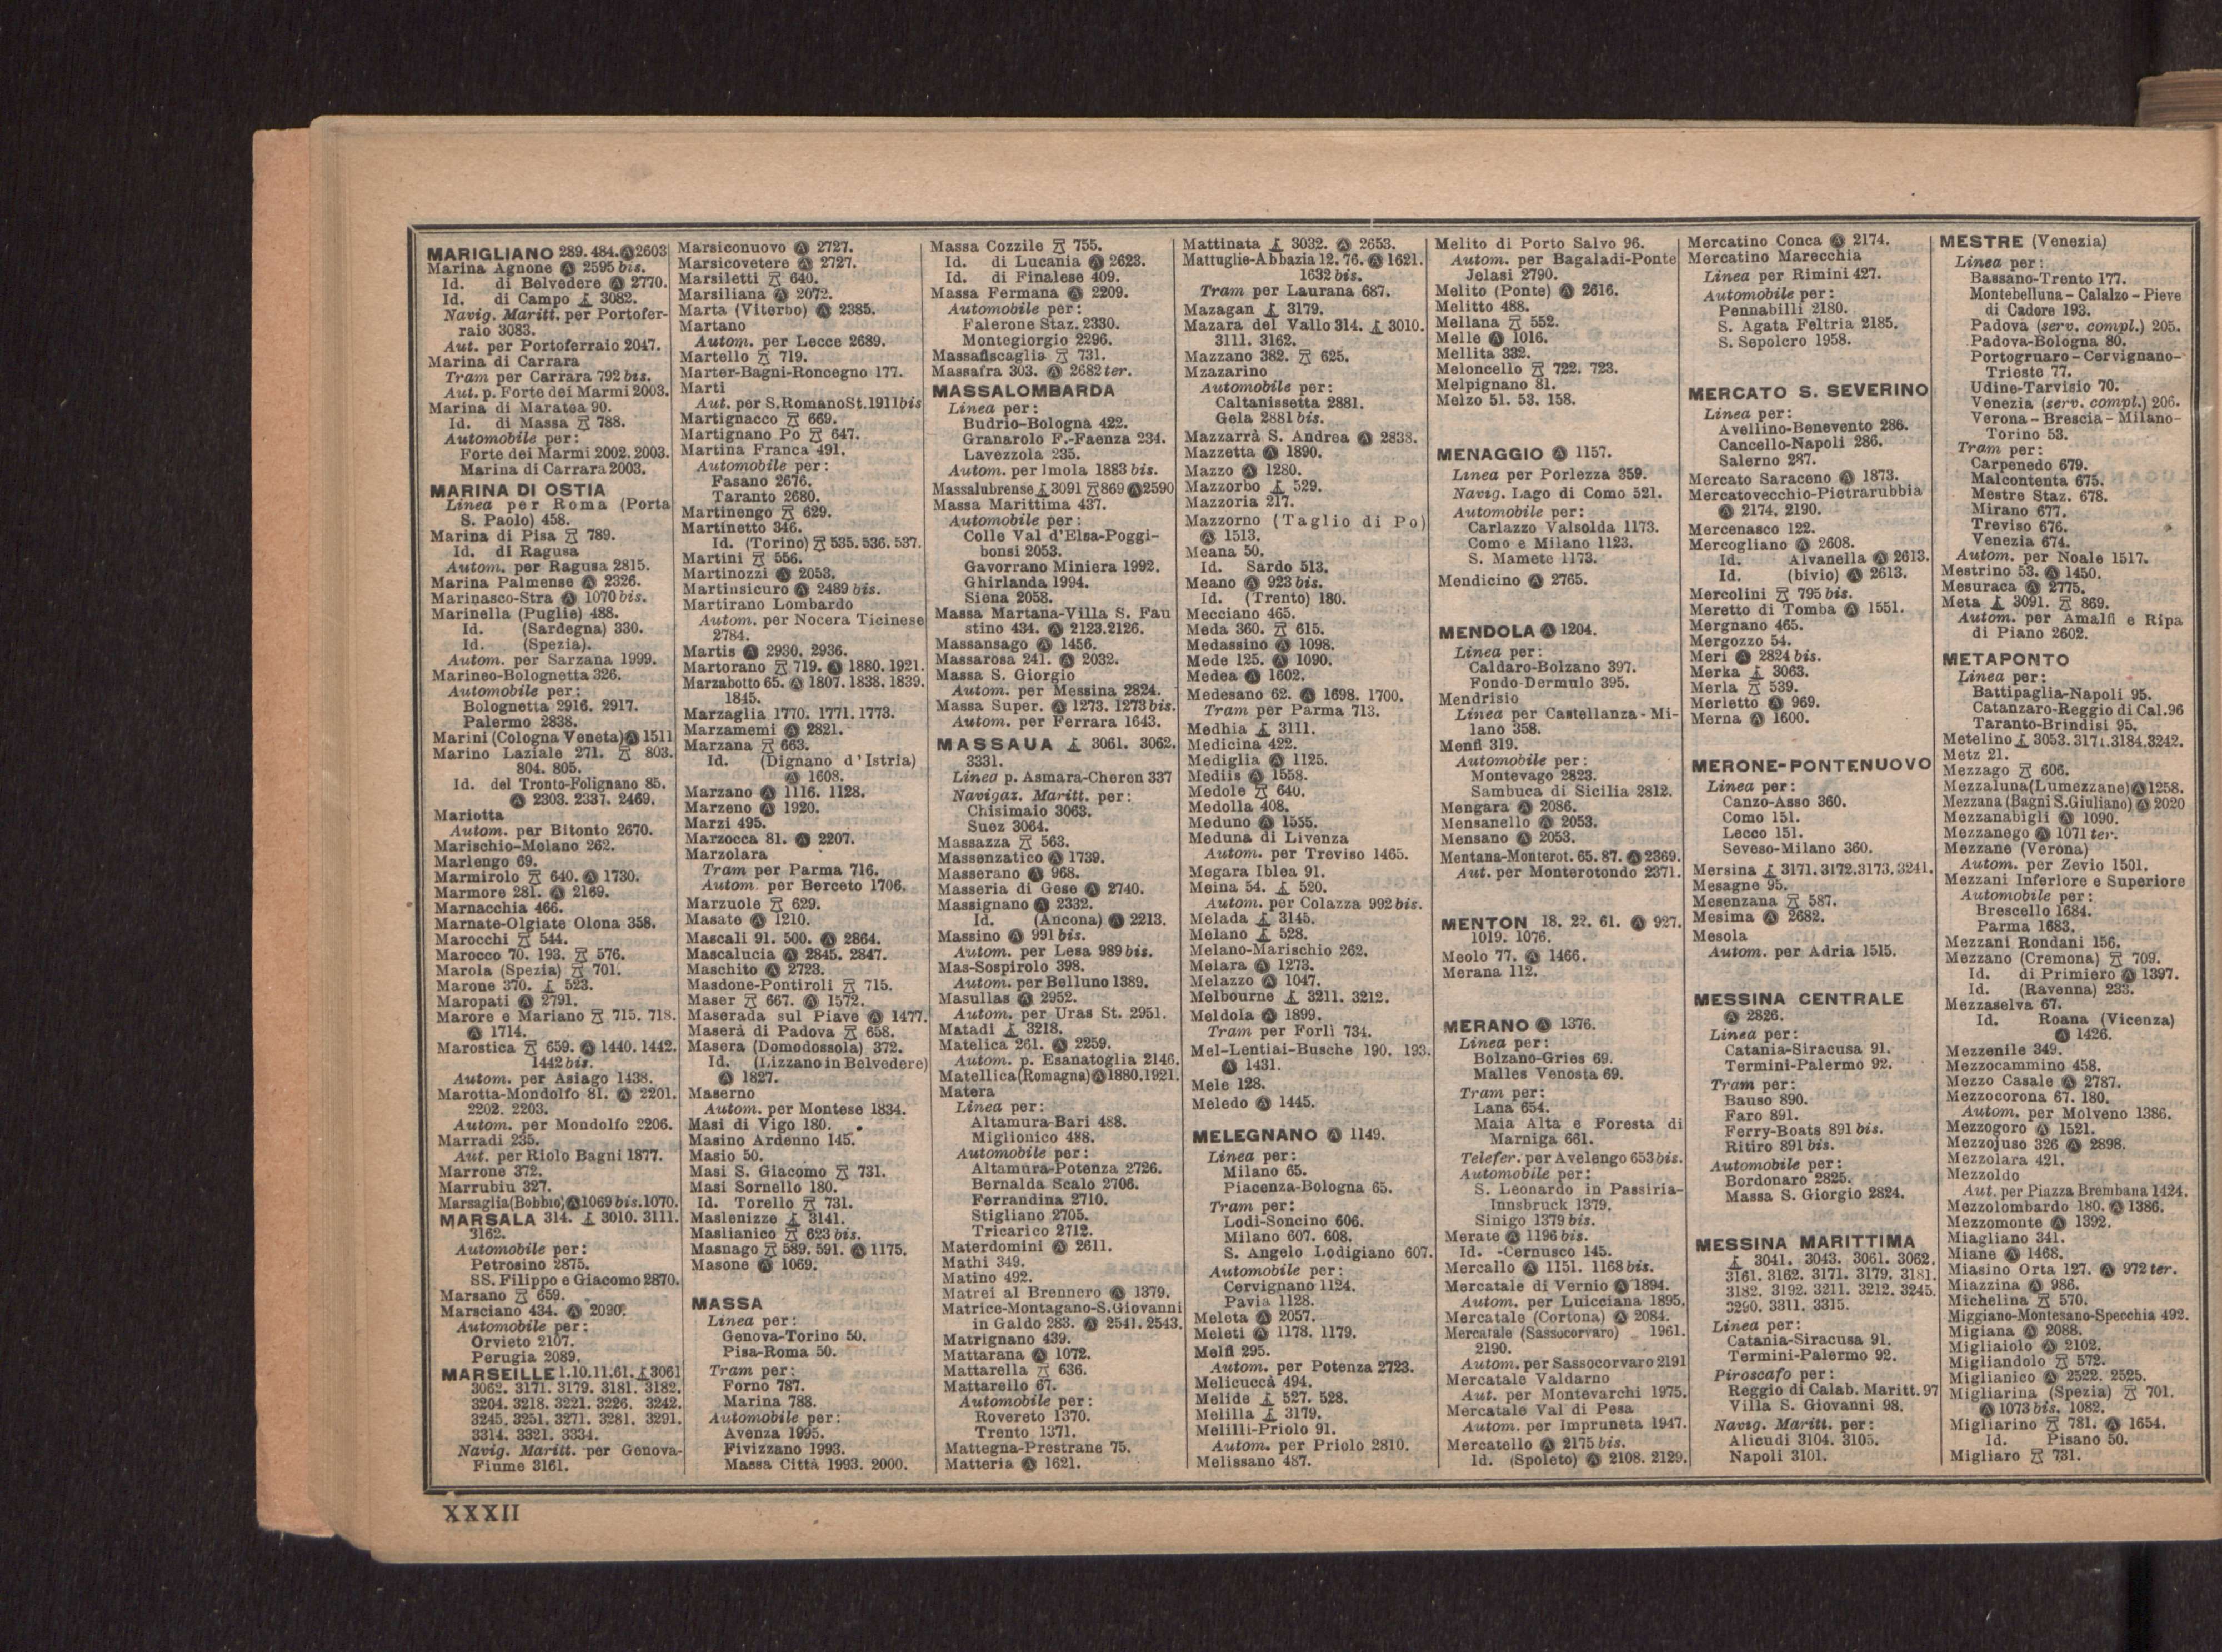 MARIGLIANO 289. 484. Ⓐ 2603
Marina Agnone Ⓐ 2595 bis.
Id. di Belvedere Ⓐ 2770.
Id. di Campo ⚓ 3082.
Navig. Maritt. per Portofer-
raio 3083.
Aut. per Portoferraio 2047.
Marina di Carrara
Tram per Carrara 792 bis.
Aut. p. Forte dei Marmi 2003.
Marina di Maratea 90.
Id. di Massa 788.
Automobile per:
Forte dei Marmi 2002. 2003.
Marina di Carrara 2003.
MARINA DI OSTIA
Linea per Roma (Porta
S. Paolo) 458.
Marina di Pisa 789.
Id. di Ragusa
Autom. per Ragusa 2815.
Marina Palmense Ⓐ 2326.
Marinasco-Stra Ⓐ 1070 bis.
Marinella (Puglie) 488.
Id. (Sardegna) 330.
Id. (Spezia).
Autom. per Sarzana 1999.
Marineo-Bolognetta 326.
Automobile per:
Bolognetta 2916. 2917.
Palermo 2838.
Marini (Cologna Veneta) Ⓐ 1511
Marino Laziale 271. 803.
804. 805.
Id. del Tronto-Folignano 85.
Ⓐ 2303. 2337. 2469.
Mariotta
Autom. per Bitonto 2670.
Marischio-Melano 262.
Marlengo 69.
Marmirolo 640. Ⓐ 1730.
Marmore 281. Ⓐ 2169.
Marnacchia 466.
Marnate-Olgiate Olona 358.
Marocchi 544.
Marocco 70. 193. 576.
Marola (Spezia) 701.
Marone 370. ⚓ 523.
Maropati Ⓐ 2791.
Marore e Mariano 715. 718.
Ⓐ 1714.
Marostica 659. Ⓐ 1440. 1442.
1442 bis.
Autom. per Asiago 1438.
Marotta-Mondolfo 81. Ⓐ 2201.
2202. 2203.
Autom. per Mondolfo 2206.
Marradi 235.
Aut. per Riolo Bagni 1877.
Marrone 372.
Marrubiu 327.
Marsaglia (Bobbio) Ⓐ 1069 bis. 1070.
MARSALA 314. ⚓ 3010. 3111.
3162.
Automobile per:
Petrosino 2875.
SS. Filippo e Giacomo 2870.
Marsano 659.
Marsciano 434. Ⓐ 2090.
Automobile per:
Orvieto 2107.
Perugia 2089.
MARSEILLE 1. 10. 11. 61. ⚓ 3061
3062. 3171. 3179. 3181. 3182.
3204. 3218. 3221. 3226. 3242.
3245. 3251. 3271. 3281. 3291.
3314. 3321. 3334.
Navig. Maritt. per Genova-
Fiume 3161.
Marsiconuovo Ⓐ 2727.
Marsicovetere Ⓐ 2727.
Marsiletti 640.
Marsiliana Ⓐ 2072.
Marta (Viterbo) Ⓐ 2385.
Martano
Autom. per Lecce 2689.
Martello 719.
Marter-Bagni-Roncegno 177.
Marti
Aut. per S. Romano St. 1911 bis
Martignacco 669.
Martignano Po 647.
Martina Franca 491.
Automobile per:
Fasano 2676.
Taranto 2680.
Martinengo 629.
Martinetto 346.
Id. (Torino) 535. 536. 537.
Martini 556.
Martinozzi Ⓐ 2053.
Martinsicuro Ⓐ 2489 bis.
Martirano Lombardo
Autom. per Nocera Ticinese
2784.
Martis Ⓐ 2930. 2936.
Martorano 719. Ⓐ 1880. 1921.
Marzabotto 65. Ⓐ 1807. 1838. 1839.
1845.
Marzaglia 1770. 1771. 1773.
Marzamemi Ⓐ 2821.
Marzana 663.
Id. (Dignano d'Istria)
Ⓐ 1608.
Marzano Ⓐ 1116. 1128.
Marzeno Ⓐ 1920.
Marzi 495.
Marzocca 81. Ⓐ 2207.
Marzolara
Tram per Parma 716.
Autom. per Berceto 1706.
Marzuole 629.
Masate Ⓐ 1210.
Mascali 91. 500. Ⓐ 2864.
Mascalucia Ⓐ 2845. 2847.
Maschito Ⓐ 2723.
Masdone-Pontiroli 715.
Maser 667. Ⓐ 1572.
Maserada sul Piave Ⓐ 1477.
Maserà di Padova 658.
Masera (Domodossola) 372.
Id. (Lizzano in Belvedere)
Ⓐ 1827.
Maserno
Autom. per Montese 1834.
Masi di Vigo 180.
Masino Ardenno 145.
Masio 50.
Masi S. Giacomo 731.
Masi Sornello 180.
Id. Torello 731.
Maslenizze ⚓ 3141.
Maslianico 623 bis.
Masnago 589. 591. Ⓐ 1175.
Masone Ⓐ 1069.
MASSA
Linea per:
Genova-Torino 50.
Pisa-Roma 50.
Tram per:
Forno 787.
Marina 788.
Automobile per:
Avenza 1995.
Fivizzano 1993.
Massa Città 1993. 2000.
Massa Cozzile 755.
Id. di Lucania Ⓐ 2623.
Id. di Finalese 409.
Massa Fermana Ⓐ 2209.
Automobile per:
Falerone Staz. 2330.
Montegiorgio 2296.
Massafiscaglia 731.
Massafra 303. Ⓐ 2682 ter.
MASSALOMBARDA
Linea per:
Budrio-Bologna 422.
Granarolo F.-Faenza 234.
Lavezzola 235.
Autom. per Imola 1883 bis.
Massalubrense ⚓ 3091 869 Ⓐ 2590
Massa Marittima 437.
Automobile per:
Colle Val d'Elsa-Poggi-
bonsi 2053.
Gavorrano Miniera 1992.
Ghirlanda 1994.
Siena 2058.
Massa Martana-Villa S. Fau
stino 434. Ⓐ 2123. 2126.
Massansago Ⓐ 1456.
Massarosa 241. Ⓐ 2032.
Massa S. Giorgio
Autom. per Messina 2824.
Massa Super. Ⓐ 1273. 1273 bis.
Autom. per Ferrara 1643.
MASSAUA ⚓ 3061. 3062.
3331.
Linea p. Asmara-Cheren 337
Navigaz. Maritt. per:
Chisimaio 3063.
Suez 3064.
Massazza 563.
Massenzatico Ⓐ 1739.
Masserano Ⓐ 968.
Masseria di Gese Ⓐ 2740.
Massignano Ⓐ 2332.
Id. (Ancona) Ⓐ 2213.
Massino Ⓐ 991 bis.
Autom. per Lesa 989 bis.
Mas-Sospirolo 398.
Autom. per Belluno 1389.
Masullas Ⓐ 2952.
Autom. per Uras St. 2951.
Matadi ⚓ 3218.
Matelica 261. Ⓐ 2259.
Autom. p. Esanatoglia 2146.
Matellica (Romagna) Ⓐ 1880. 1921.
Matera
Linea per:
Altamura-Bari 488.
Miglionico 488.
Automobile per:
Altamura-Potenza 2726.
Bernalda Scalo 2706.
Ferrandina 2710.
Stigliano 2705.
Tricarico 2712.
Materdomini Ⓐ 2611.
Mathi 349.
Matino 492.
Matrei al Brennero Ⓐ 1379.
Matrice-Montagano-S. Giovanni
in Galdo 283. Ⓐ 2541. 2543.
Matrignano 439.
Mattarana Ⓐ 1072.
Mattarella 636.
Mattarello 67.
Automobile per:
Rovereto 1370.
Trento 1371.
Mattegna-Prestrane 75.
Matteria Ⓐ 1621.
Mattinata ⚓ 3032. Ⓐ 2653.
Mattuglie-Abbazia 12. 76. Ⓐ 1621.
1632 bis.
Tram per Laurana 687.
Mazagan ⚓ 3179.
Mazara del Vallo 314. ⚓ 3010.
3111. 3162.
Mazzano 382. 625.
Mzazarino
Automobile per:
Caltanissetta 2881.
Gela 2881 bis.
Mazzarrà S. Andrea Ⓐ 2838.
Mazzetta Ⓐ 1890.
Mazzo Ⓐ 1280.
Mazzorbo ⚓ 529.
Mazzoria 217.
Mazzorno (Taglio di Po)
Ⓐ 1513.
Meana 50.
Id. Sardo 513.
Meano Ⓐ 923 bis.
Id. (Trento) 180.
Mecciano 465.
Meda 360. 615.
Medassino Ⓐ 1098.
Mede 125. Ⓐ 1090.
Medea Ⓐ 1602.
Medesano 62. Ⓐ 1698. 1700.
Tram per Parma 713.
Medhia ⚓ 3111.
Medicina 422.
Mediglia Ⓐ 1125.
Mediis Ⓐ 1558.
Medole 640.
Medolla 408.
Meduno Ⓐ 1555.
Meduna di Livenza
Autom. per Treviso 1465.
Megara Iblea 91.
Meina 54. ⚓ 520.
Autom. per Colazza 992 bis.
Melada ⚓ 3145.
Melano ⚓ 528.
Melano-Marischio 262.
Melara Ⓐ 1273.
Melazzo Ⓐ 1047.
Melbourne ⚓ 3211. 3212.
Meldola Ⓐ 1899.
Tram per Forlì 734.
Mel-Lentiai-Busche 190. 193.
Ⓐ 1431.
Mele 128.
Meledo Ⓐ 1445.
MELEGNANO Ⓐ 1149.
Linea per:
Milano 65.
Piacenza-Bologna 65.
Tram per:
Lodi-Soncino 606.
Milano 607. 608.
S. Angelo Lodigiano 607.
Automobile per:
Cervignano 1124.
Pavia 1128.
Meleta Ⓐ 2057.
Meleti Ⓐ 1178. 1179.
Melfi 295.
Autom. per Potenza 2723.
Melicuccà 494.
Melide ⚓ 527. 528.
Melilla ⚓ 3179.
Melilli-Priolo 91.
Autom. per Priolo 2810.
Melissano 487.
Melito di Porto Salvo 96.
Autom. per Bagaladi-Ponte
Jelasi 2790.
Melito (Ponte) Ⓐ 2616.
Melitto 488.
Mellana 552.
Melle Ⓐ 1016.
Mellita 332.
Meloncello 722. 723.
Melpignano 81.
Melzo 51. 53. 158.
MENAGGIO Ⓐ 1157.
Linea per Porlezza 359.
Navig. Lago di Como 521.
Automobile per:
Carlazzo Valsolda 1173.
Como e Milano 1123.
S. Mamete 1173.
Mendicino Ⓐ 2765.
MENDOLA Ⓐ 1204.
Linea per:
Caldaro-Bolzano 397.
Fondo-Dermulo 395.
Mendrisio
Linea per Castellanza-Mi-
lano 358.
Menfi 319.
Automobile per:
Montevago 2823.
Sambuca di Sicilia 2812.
Mengara Ⓐ 2086.
Mensanello Ⓐ 2053.
Mensano Ⓐ 2053.
Mentana-Monterot. 65. 87. Ⓐ 2369.
Aut. per Monterotondo 2371.
MENTON 18. 22. 61. Ⓐ 927.
1019. 1076.
Meolo 77. Ⓐ 1466.
Merana 112.
MERANO Ⓐ 1376.
Linea per:
Bolzano-Gries 69.
Malles Venosta 69.
Tram per:
Lana 654.
Maia Alta e Foresta di
Marniga 661.
Telefer. per Avelengo 653 bis.
Automobile per:
S. Leonardo in Passiria-
Innsbruck 1379.
Sinigo 1379 bis.
Merate Ⓐ 1196 bis.
Id. -Cernusco 145.
Mercallo Ⓐ 1151. 1168 bis.
Mercatale di Vernio Ⓐ 1894.
Autom. per Luicciana 1895.
Mercatale (Cortona) Ⓐ 2084.
Mercatale (Sassocorvaro) 1961.
2190.
Autom. per Sassocorvaro 2191
Mercatale Valdarno
Aut. per Montevarchi 1975.
Mercatale Val di Pesa
Autom. per Impruneta 1947.
Mercatello Ⓐ 2175 bis.
Id. (Spoleto) Ⓐ 2108. 2129.
Mercatino Conca Ⓐ 2174.
Mercatino Marecchia
Linea per Rimini 427.
Automobile per:
Pennabilli 2180.
S. Agata Feltria 2185.
S. Sepolcro 1958.
MERCATO S. SEVERINO
Linea per:
Avellino-Benevento 286.
Cancello-Napoli 286.
Salerno 287.
Mercato Saraceno Ⓐ 1873.
Mercatovecchio-Pietrarubbia
Ⓐ 2174. 2190.
Mercenasco 122.
Mercogliano Ⓐ 2608.
Id. Alvanella Ⓐ 2613.
Id. (bivio) Ⓐ 2613.
Mercolini 795 bis.
Meretto di Tomba Ⓐ 1551.
Mergnano 465.
Mergozzo 54.
Meri Ⓐ 2824 bis.
Merka ⚓ 3063.
Merla 539.
Merletto Ⓐ 969.
Merna Ⓐ 1600.
MERONE-PONTENUOVO
Linea per:
Canzo-Asso 360.
Como 151.
Lecco 151.
Seveso-Milano 360.
Mersina ⚓ 3171. 3172. 3173. 3241.
Mesagne 95.
Mesenzana 587.
Mesima Ⓐ 2682.
Mesola
Autom. per Adria 1515.
MESSINA CENTRALE
Ⓐ 2826.
Linea per:
Catania-Siracusa 91.
Termini-Palermo 92.
Tram per:
Bauso 890.
Faro 891.
Ferry-Boats 891 bis.
Ritiro 891 bis.
Automobile per:
Bordonaro 2825.
Massa S. Giorgio 2824.
MESSINA MARITTIMA
⚓ 3041. 3043. 3061. 3062.
3161. 3162. 3171. 3179. 3181.
3182. 3192. 3211. 3212. 3245.
3290. 3311. 3315.
Linea per:
Catania-Siracusa 91.
Termini-Palermo 92.
Piroscafo per:
Reggio di Calab. Maritt. 97
Villa S. Giovanni 98.
Navig. Maritt. per:
Alicudi 3104. 3105.
Napoli 3101.
MESTRE (Venezia)
Linea per:
Bassano-Trento 177.
Montebelluna-Calalzo-Pieve
di Cadore 193.
Padova (serv. compl.) 205.
Padova-Bologna 80.
Portogruaro-Cervignano-
Trieste 77.
Udine-Tarvisio 70.
Venezia (serv. compl.) 206.
Verona-Brescia-Milano-
Torino 53.
Tram per:
Carpenedo 679.
Malcontenta 675.
Mestre Staz. 678.
Mirano 677.
Treviso 676.
Venezia 674.
Autom. per Noale 1517.
Mestrino 53. Ⓐ 1450.
Mesuraca Ⓐ 2775.
Meta ⚓ 3091. 869.
Autom. per Amalfi e Ripa
di Piano 2602.
METAPONTO
Linea per:
Battipaglia-Napoli 95.
Catanzaro-Reggio di Cal. 96
Taranto-Brindisi 95.
Metelino ⚓ 3053. 3171. 3184. 3242.
Metz 21.
Mezzago 606.
Mezzaluna (Lumezzane) Ⓐ 1258.
Mezzana (Bagni S. Giuliano) Ⓐ 2020
Mezzanabigli Ⓐ 1090.
Mezzanego Ⓐ 1071 ter.
Mezzane (Verona)
Autom. per Zevio 1501.
Mezzani Inferiore e Superiore
Automobile per:
Brescello 1684.
Parma 1683.
Mezzani Rondani 156.
Mezzano (Cremona) 709.
Id. di Primiero Ⓐ 1397.
Id. (Ravenna) 233.
Mezzaselva 67.
Id. Roana (Vicenza)
Ⓐ 1426.
Mezzenile 349.
Mezzocammino 458.
Mezzo Casale Ⓐ 2787.
Mezzocorona 67. 180.
Autom. per Molveno 1386.
Mezzogoro Ⓐ 1521.
Mezzojuso 326 Ⓐ 2898.
Mezzolara 421.
Mezzoldo
Aut. per Piazza Brembana 1424.
Mezzolombardo 180. Ⓐ 1386.
Mezzomonte Ⓐ 1392.
Miagliano 341.
Miane Ⓐ 1468.
Miasino Orta 127. Ⓐ 972 ter.
Miazzina Ⓐ 986.
Michelina 570.
Miggiano-Montesano-Specchia 492.
Migiana Ⓐ 2088.
Migliaiolo Ⓐ 2102.
Migliandolo 572.
Miglianico Ⓐ 2522. 2525.
Migliarina (Spezia) 701.
Ⓐ 1073 bis. 1082.
Migliarino 781. Ⓐ 1654.
Id. Pisano 50.
Migliaro 731.
XXXII